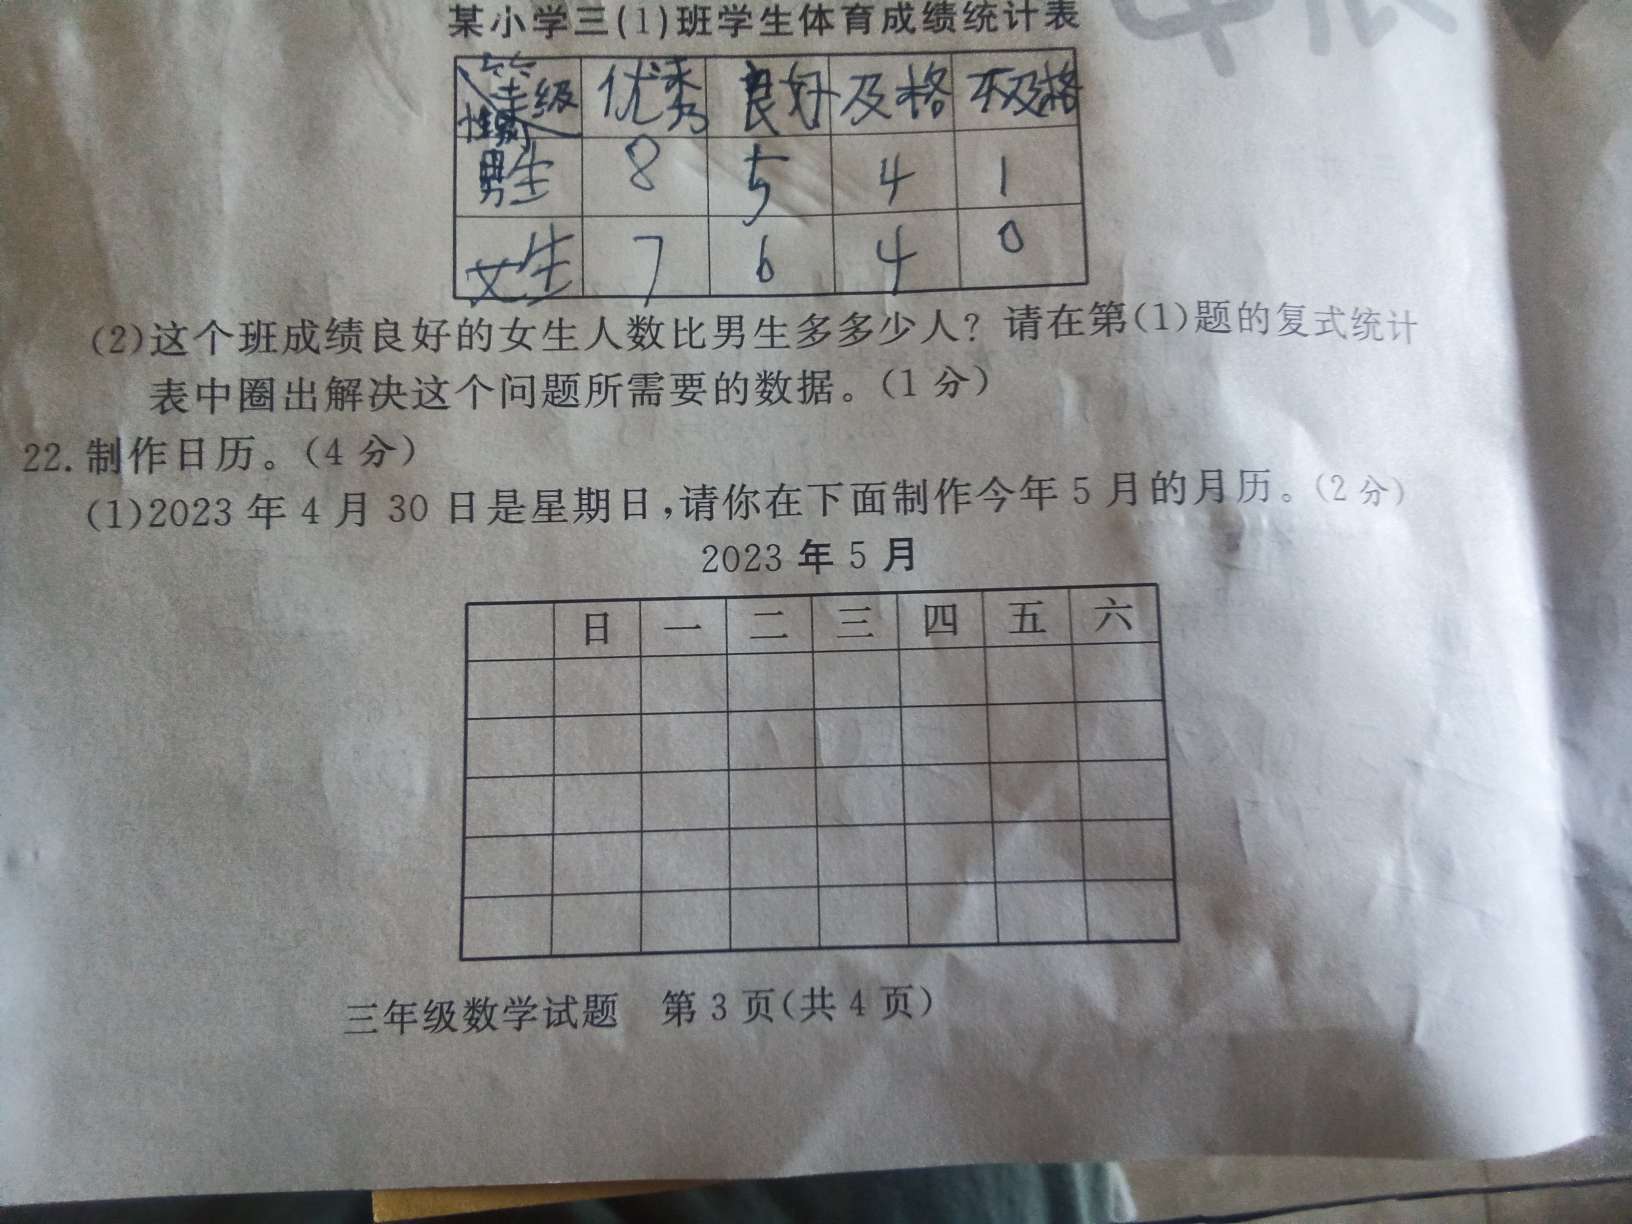 某小学三(1)班学生体育成绩统计表
等级 优秀 良好 及格 不及格
性别
男生 8 5 4 1
女生 7 6 4 0
(2)这个班成绩良好的女生人数比男生多多少人？请在第(1)题的复式统计
表中圈出解决这个问题所需要的数据。(1 分)
22.制作日历。(4 分)
(1)2023 年 4 月 30 日是星期日,请你在下面制作今年 5 月的月历。(2 分)
2023 年 5 月
日 一 二 三 四 五 六
三年级数学试题 第 3 页(共 4 页)